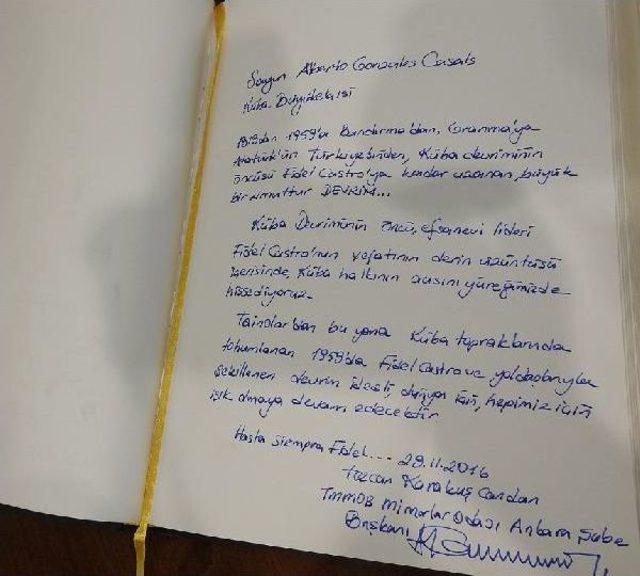 Sayın Alberto Gonzales Casals
Küba Büyükelçisi
1919'dan 1959'a Bandırma'dan, Granma'ya
Atatürk'ün Türkiye'sinden, Küba devriminin
öncüsü Fidel Castro'ya kadar uzanan, büyük
bir umuttur DEVRİM...
Küba Devriminin öncü, efsanevi lideri
Fidel Castro'nun vefatının derin üzüntüsü
içerisinde, Küba halkının acısını yüreğimizde
hissediyoruz.
Tainolar'dan bu yana Küba topraklarında
tohumlanan 1959'da Fidel Castro ve yoldaşlarıyla
şekillenen devrim ideali, dünya için, hepimiz için
ışık olmaya devam edecektir
Hasta siempre Fidel... 29.11.2016
Tezcan Karakuş Candan
TMMOB Mimarlar Odası Ankara Şube
Başkanı